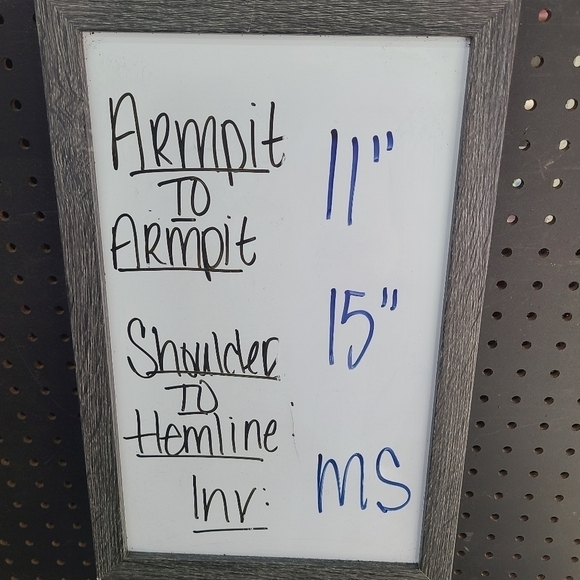 Armpit
To
Armpit 11"
Shoulder
To
Hemline: 15"
Inv: MS